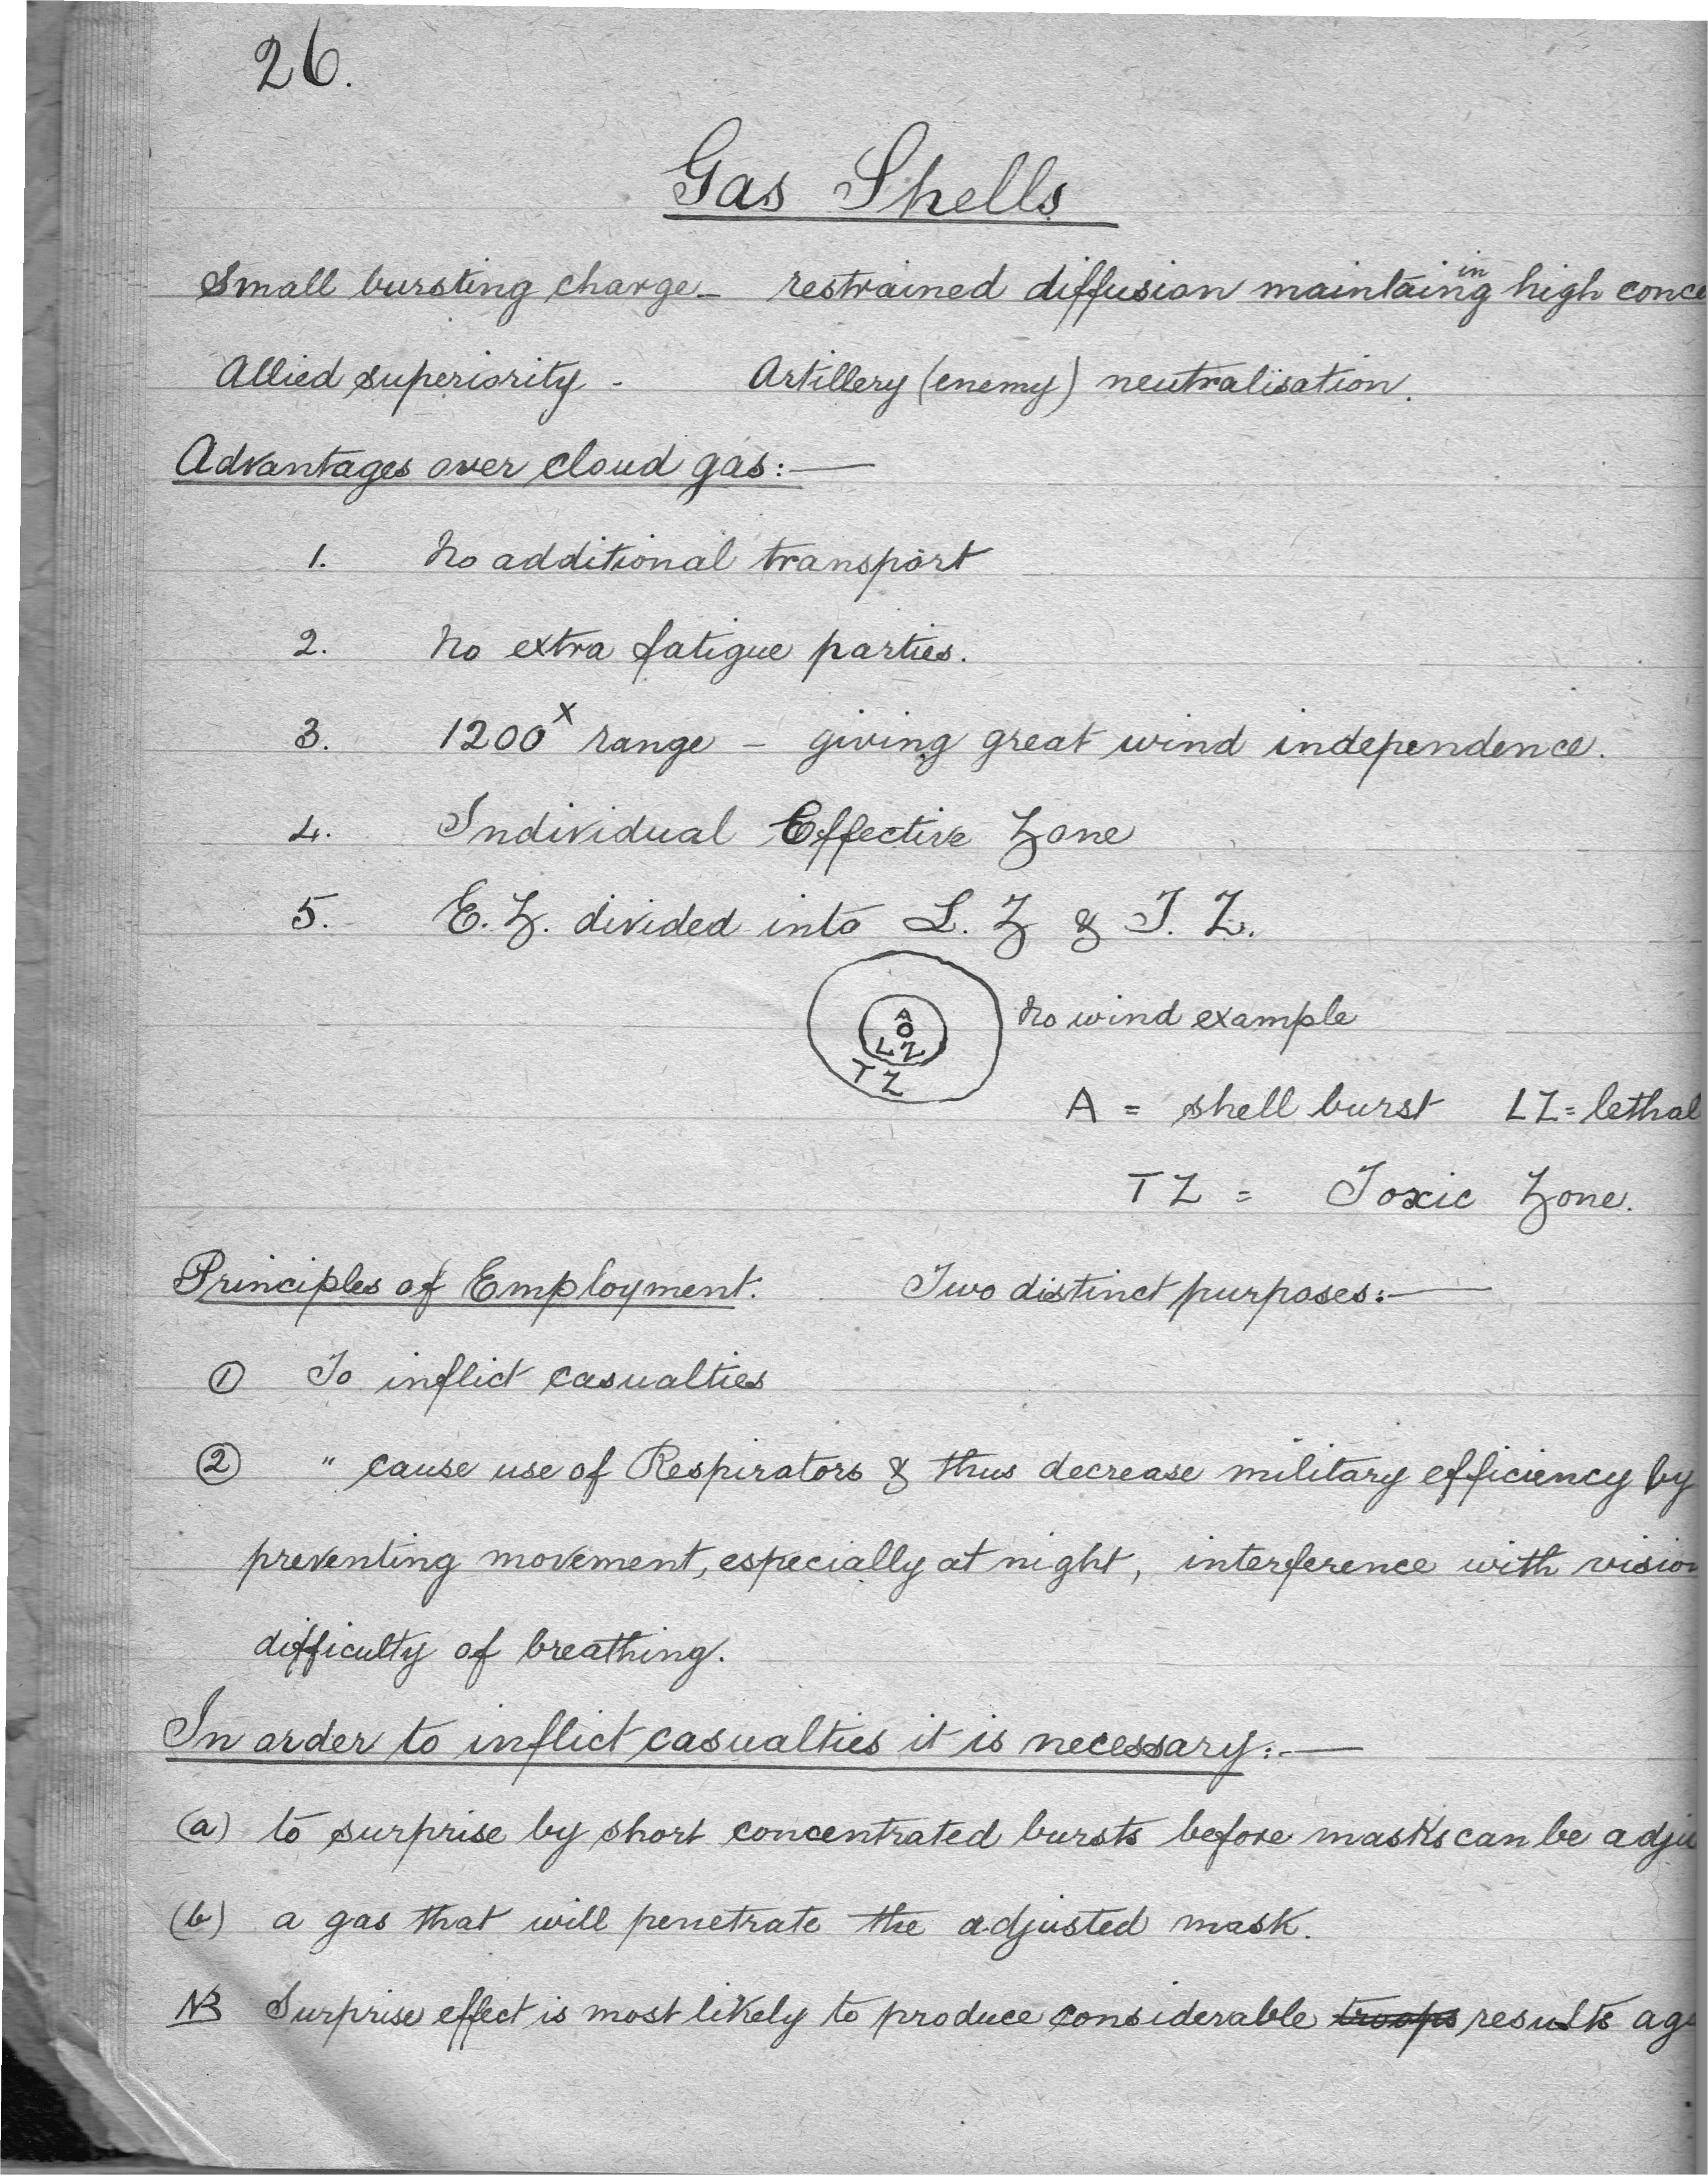 26.
Gas Shells
Small bursting charge - restrained diffusion maintaining in high conce
Allied superiority - Artillery (enemy) neutralisation.
Advantages over cloud gas:—
1. No additional transport
2. No extra fatigue parties.
3. 1200x range - giving great wind independence.
4. Individual Effective Zone
5. E. Z. divided into L. Z & T. Z.
A
LZ
TZ
No wind example
A = shell burst LZ = lethal
TZ = Toxic Zone.
Principles of Employment. Two distinct purposes:—
① To inflict casualties
② " cause use of Respirators & thus decrease military efficiency by
preventing movement, especially at night, interference with vision
difficulty of breathing.
In order to inflict casualties it is necessary:—
(a) to surprise by short concentrated bursts before masks can be adju
(b) a gas that will penetrate the adjusted mask.
NB Surprise effect is most likely to produce considerable troops results aga